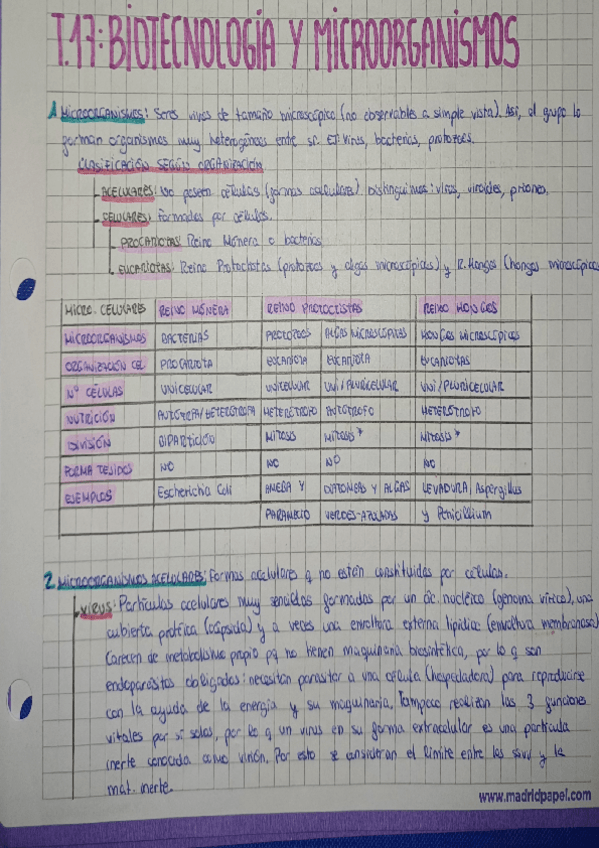 T.17: BIOTECNOLOGÍA Y MICROORGANISMOS
1 MICROORGANISMOS: Seres vivos de tamaño microscópico (no observables a simple vista). Así, el grupo lo
forman organismos muy heterogéneos entre sí. EJ: Virus, bacterias, protozoos.
CLASIFICACIÓN SEGÚN ORGANIZACIÓN
ACELULARES: No poseen células (formas acelulares). Distinguimos: virus, viroides, priones.
CELULARES: Formados por células.
PROCARIOTAS: Reino Mónera o bacterias
EUCARIOTAS: Reino Protoctistas (protozoos y algas microscópicas) y R. Hongos (hongos microscópicos
MICRO. CELULARES REINO MÓNERA REINO PROTOCTISTAS REINO HONGOS
MICROORGANISMOS BACTERIAS PROTOZOOS ALGAS MICROSCÓPICAS HONGOS MICROSCÓPICOS
ORGANIZACIÓN CEL. PROCARIOTA EUCARIOTA EUCARIOTA EUCARIOTAS
Nº CÉLULAS UNICELULAR UNICELULAR UNI/PLURICELULAR UNI/PLURICELULAR
NUTRICIÓN AUTÓTROFA/HETERÓTROFA HETERÓTROFO AUTÓTROFO HETERÓTROFO
DIVISIÓN BIPARTICIÓN MITOSIS MITOSIS * MITOSIS *
FORMA TEJIDOS NO NO NO NO
EJEMPLOS Escherichia Coli AMEBA Y DIATOMEAS Y ALGAS LEVADURA, Aspergillus
PARAMECIO VERDES-AZULADAS y Penicillium
2 MICROORGANISMOS ACELULARES: Formas acelulares q no están constituidas por células.
VIRUS: Partículas acelulares muy sencillas formadas por un ác. nucleico (genoma vírico), una
cubierta proteica (cápsida) y a veces una envoltura externa lipídica (envoltura membranosa)
Carecen de metabolismo propio pq no tienen maquinaria biosintética, por lo q son
endoparásitos obligados: necesitan parasitar a una célula (hospedadora) para reproducirse
con la ayuda de la energía y su maquinaria. Tampoco realizan las 3 funciones
vitales por si solos, por lo q un virus en su forma extracelular es una partícula
inerte conocida como virión. Por esto se consideran el límite entre los y la
mat. inerte.
www.madridpapel.com